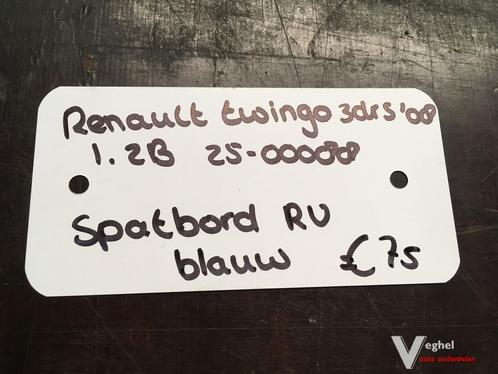 Renault twingo 3drs '08
1.2B 25-000088
Spatbord RV
blauw €75
Veghel
auto onderdelen